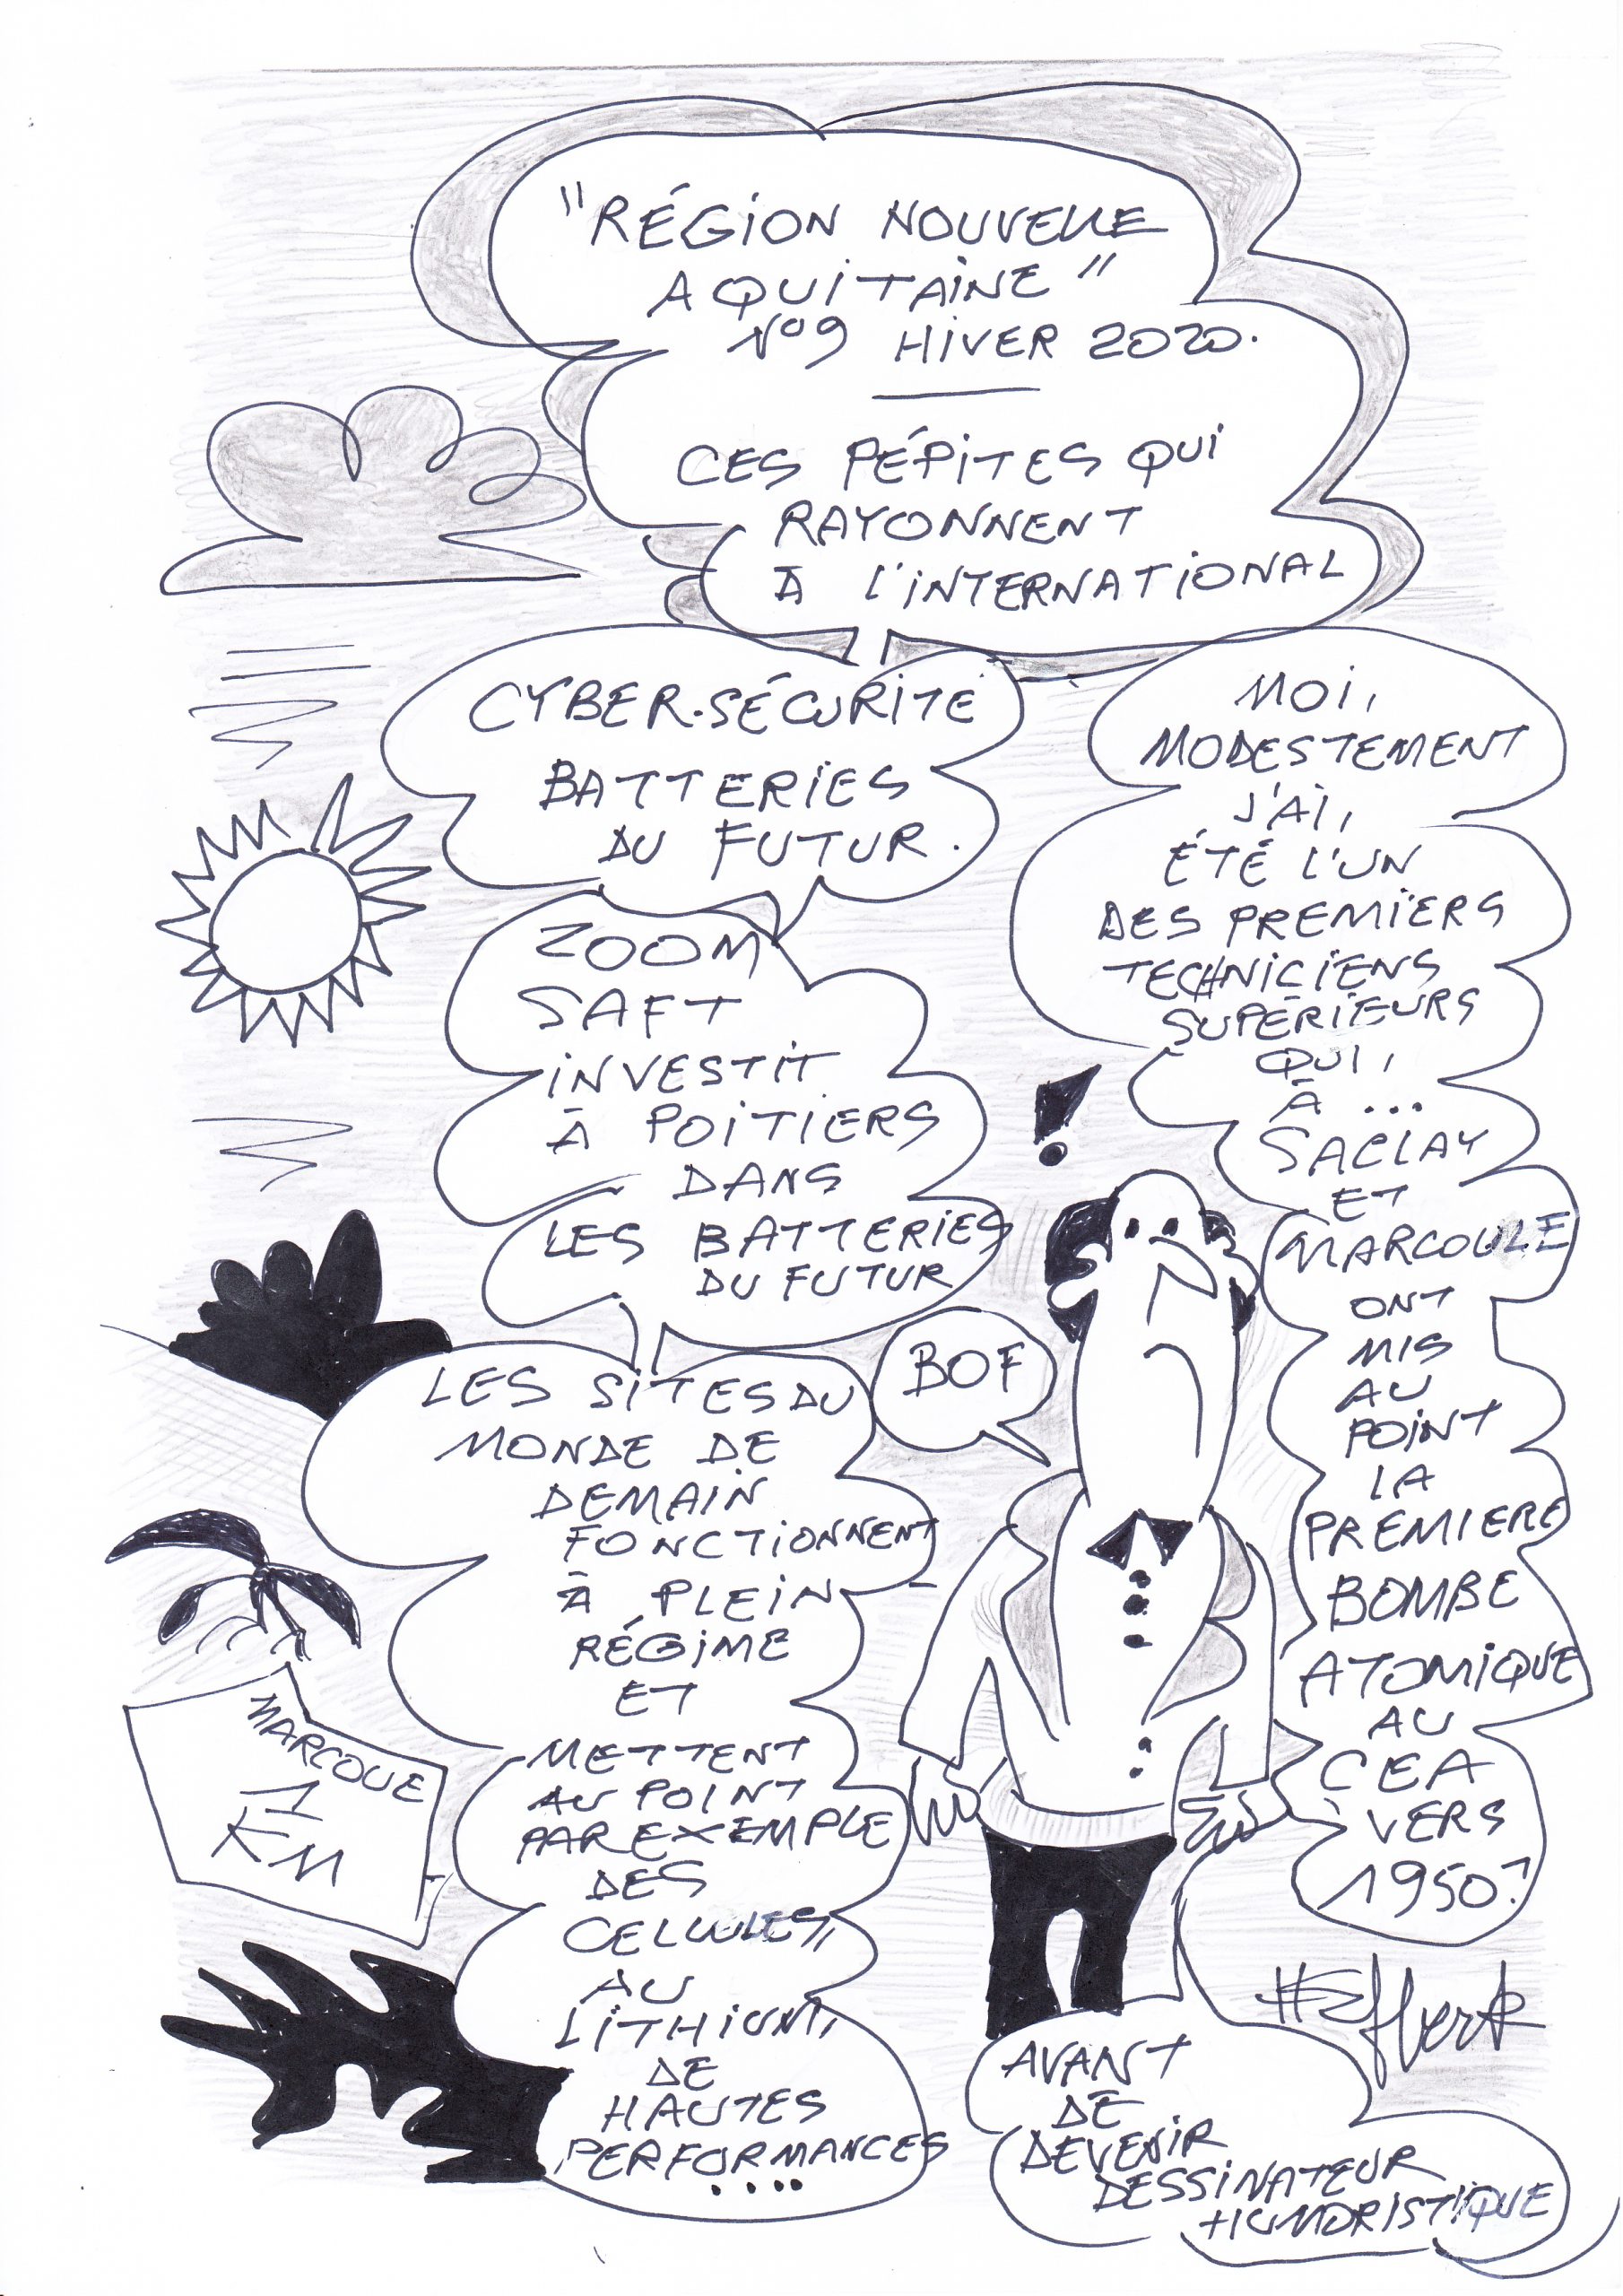 "RÉGION NOUVELLE
AQUITAINE"
N°9 HIVER 2020.
CES PÉPITES QUI
RAYONNENT
À L'INTERNATIONAL
CYBER-SÉCURITÉ
BATTERIES
DU FUTUR.
ZOOM
SAFT
INVESTIT
À POITIERS
DANS
LES BATTERIES
DU FUTUR
LES SITES DU
MONDE DE
DEMAIN
FONCTIONNENT
À PLEIN
RÉGIME
ET
METTENT
AU POINT
PAR EXEMPLE
DES
CELLULES,
AU
LITHIUM,
DE
HAUTES
PERFORMANCES
....
MOI,
MODESTEMENT
J'AI,
ÉTÉ L'UN
DES PREMIERS
TECHNICIENS
SUPÉRIEURS
QUI,
À ...
SACLAY
ET
MARCOULE
ONT
MIS
AU
POINT
LA
PREMIERE
BOMBE
ATOMIQUE
AU
CEA
VERS
1950?
!
BOF
MARCOUE
1
KM
AVANT
DE
DEVENIR
DESSINATEUR
HUMORISTIQUE